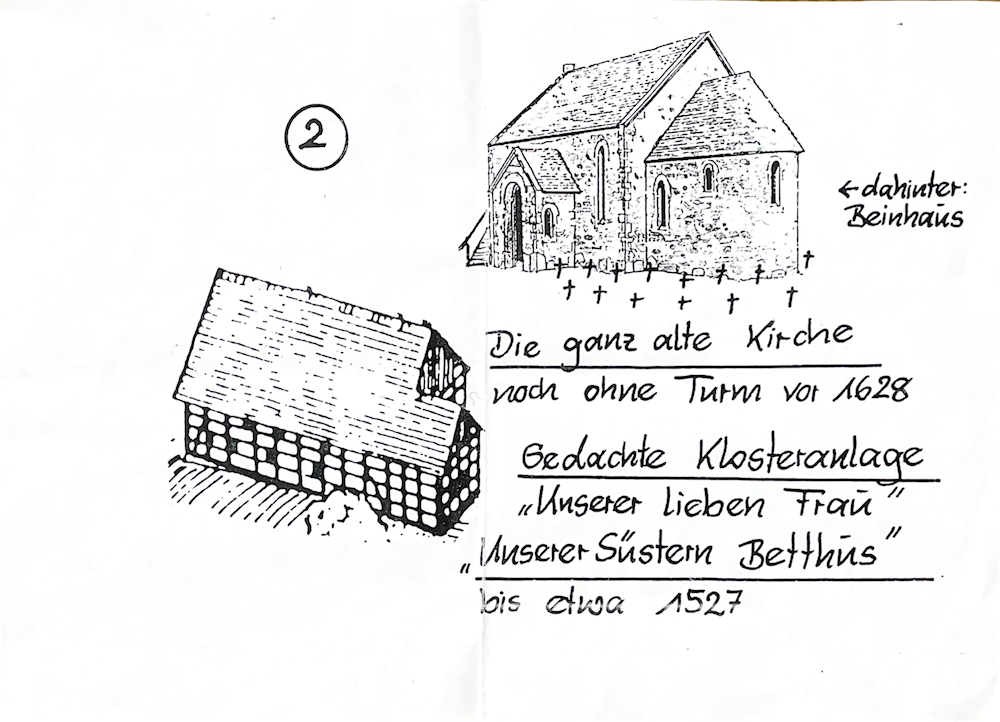 2
← dahinter:
Beinhaus
Die ganz alte Kirche
noch ohne Turm vor 1628
Gedachte Klosteranlage
„Unserer lieben Frau"
„Unserer Süstern Betthus"
bis etwa 1527